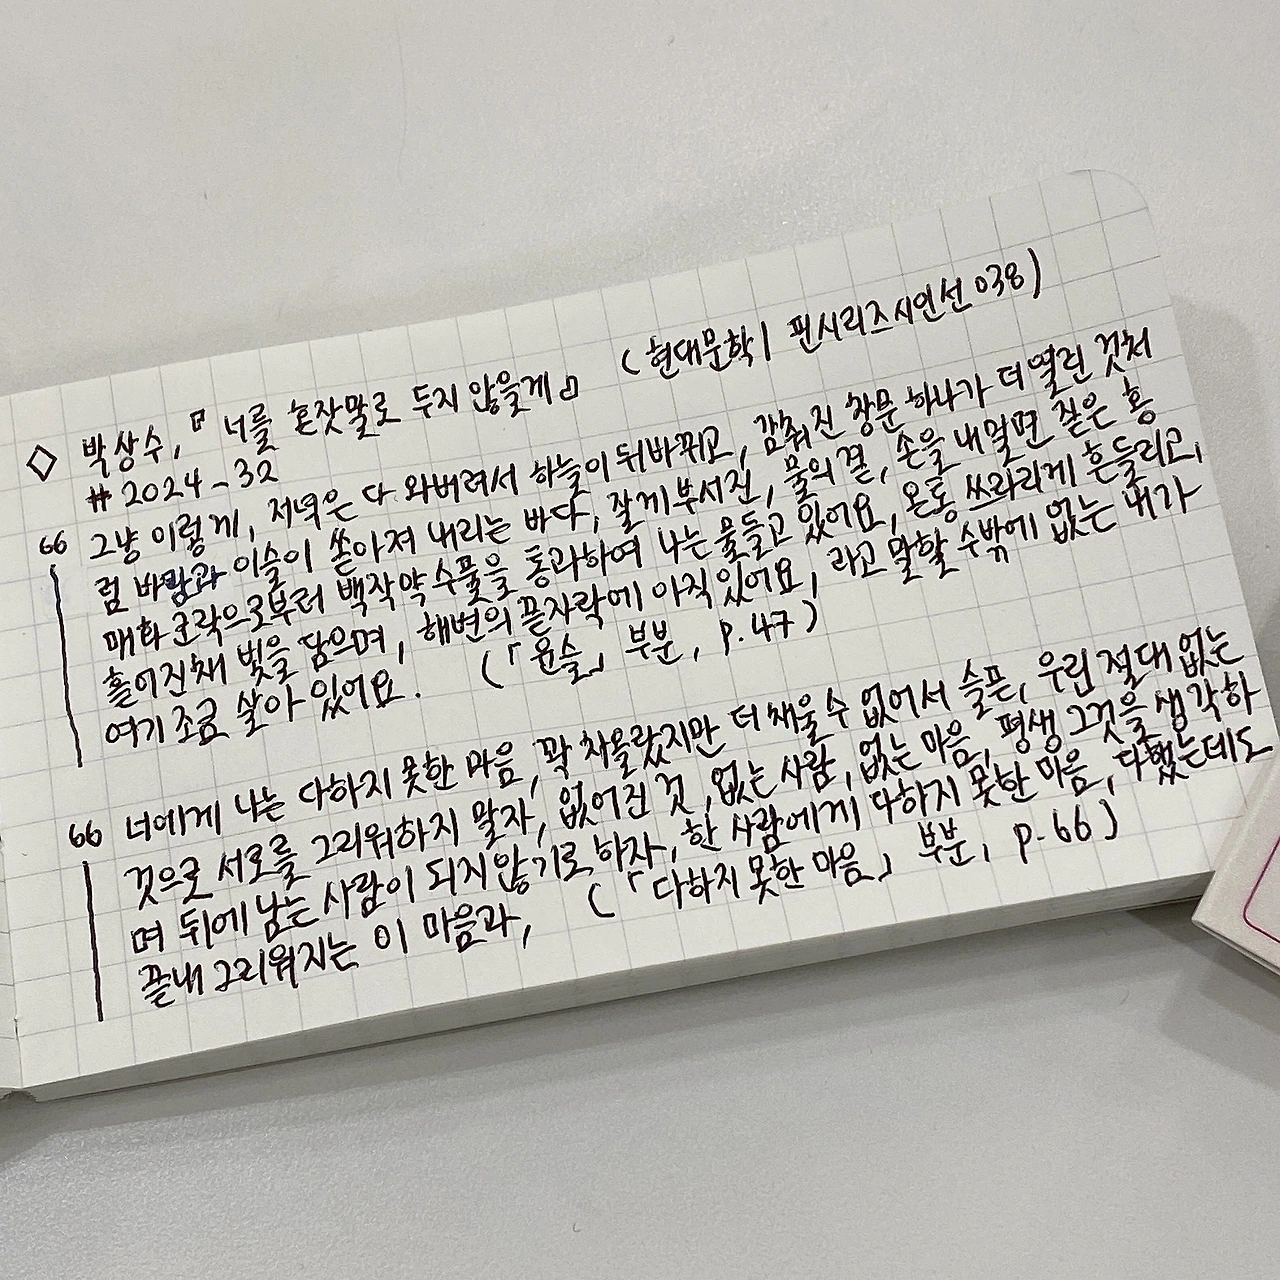 ◇ 박상수, 『너를 혼잣말로 두지 않을게』 (현대문학 | 핀시리즈시인선 038)
# 2024-32
66 그냥 이렇게, 저녁은 다 와버려서 하늘이 뒤바뀌고, 감춰진 창문 하나가 더 열린 것처
럼 바람과 이슬이 쏟아져 내리는 바다, 잘게 부서진, 물의 결, 손을 내밀면 짙은 홍
매화 군락으로부터 백작약 수풀을 통과하여 나는 물들고 있어요, 온통 쓰라리게 흔들리고,
흩어진채 빛을 담으며, 해변의 끝자락에 아직 있어요, 라고 말할 수밖에 없는 내가
여기 조금 살아 있어요. (「윤슬」 부분, p.47)
66 너에게 나는 다하지 못한 마음, 꽉 차올랐지만 더 채울 수 없어서 슬픈, 우린 절대 없는
것으로 서로를 그리워하지 말자, 없어진 것, 없는 사람, 없는 마음, 평생 그것을 생각하
며 뒤에 남는 사람이 되지 않기로 하자, 한 사람에게 다하지 못한 마음, 다했는데도
끝내 그리워지는 이 마음과, (「다하지 못한 마음」 부분, p.66)